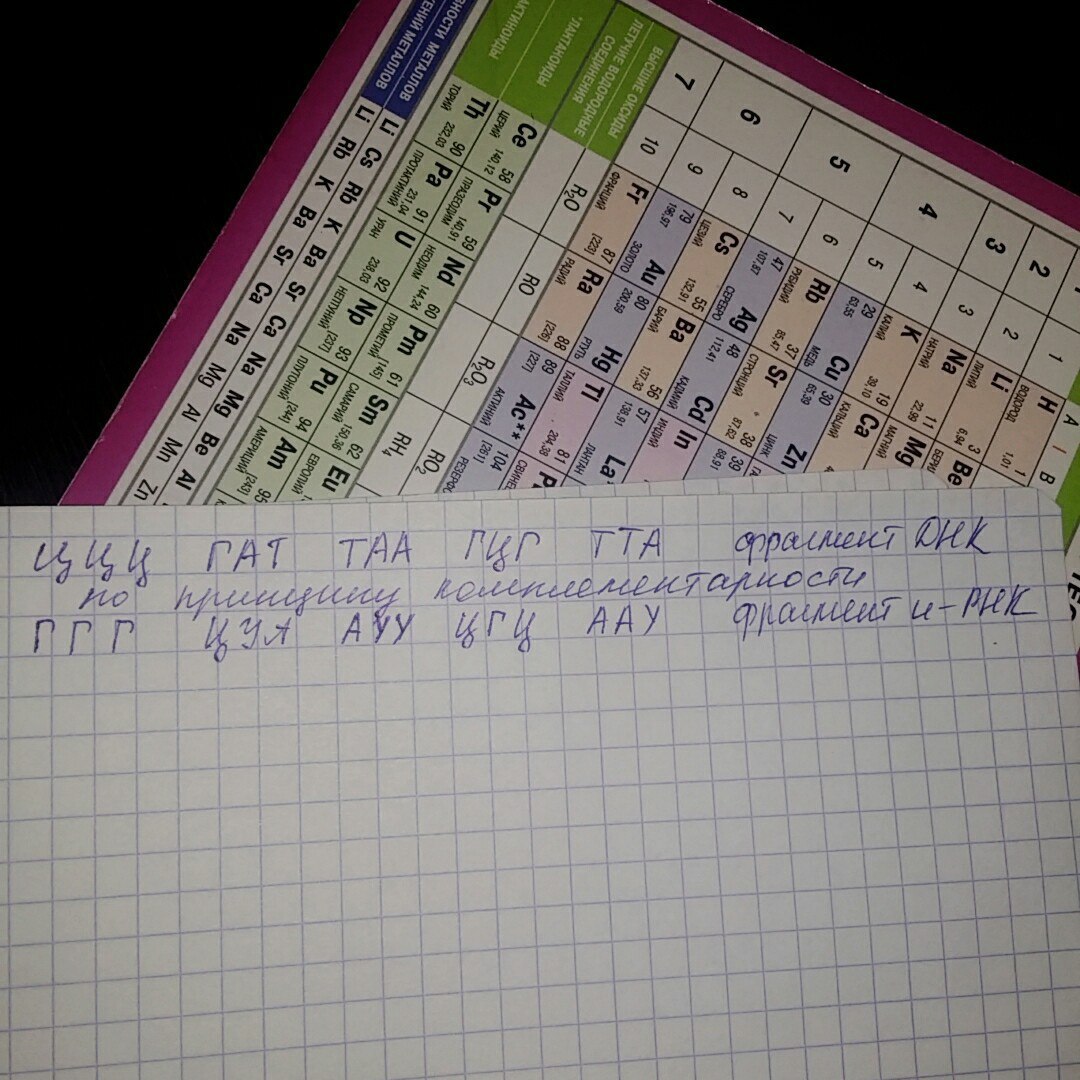 ЦЦЦ ГАТ ТАА ГЦГ ТТА фрагмент ДНК
по принципу комплементарности
ГГГ ЦУА АУУ ЦГЦ ААУ фрагмент и-РНК
ВЫСШИЕ ОКСИДЫ
ЛЕТУЧИЕ ВОДОРОДНЫЕ
СОЕДИНЕНИЯ
*ЛАНТАНОИДЫ
АКТИНОИДЫ
ВНОСТИ МЕТАЛЛОВ
ЕНИЙ МЕТАЛЛОВ
Li Cs Rb K Ba Sr Ca Na Mg Be Al
Li Rb K Ba Sr Ca Na Mg Al Mn Zn
ЦЕРИЙ Ce 140,12 58
ПРАЗЕОДИМ Pr 140,91 59
НЕОДИМ Nd 144,24 60
ПРОМЕТИЙ Pm [145] 61
САМАРИЙ Sm 150,36 62
ЕВРОПИЙ Eu
ТОРИЙ Th 232,03 90
ПРОТАКТИНИЙ Pa 231,04 91
УРАН U 238,03 92
НЕПТУНИЙ Np [237] 93
ПЛУТОНИЙ Pu [244] 94
АМЕРИЦИЙ Am [243] 95
R2O RO R2O3 RO2
RH4
1 2 3 4 5 6 7
1 2 3 4 5 6 7 8 9 10
A I B
ВОДОРОД H 1,01 1
ЛИТИЙ Li 6,94 3
Be
НАТРИЙ Na 22,99 11
МАГНИЙ Mg
КАЛИЙ K 39,10 19
КАЛЬЦИЙ Ca
29 Cu 63,55 МЕДЬ
30 Zn 65,39 ЦИНК
РУБИДИЙ Rb 85,47 37
СТРОНЦИЙ Sr 87,62 38
39 88,91
47 Ag 107,87 СЕРЕБРО
48 Cd 112,41 КАДМИЙ
ИНДИЙ In
ЦЕЗИЙ Cs 132,91 55
БАРИЙ Ba 137,33 56
57 La 138,91 ЛАНТАН
79 Au 196,97 ЗОЛОТО
80 Hg 200,59 РТУТЬ
ТАЛЛИЙ Tl 204,38 81
ФРАНЦИЙ Fr [223] 87
РАДИЙ Ra [226] 88
89 Ac** [227] АКТИНИЙ
104 [261]